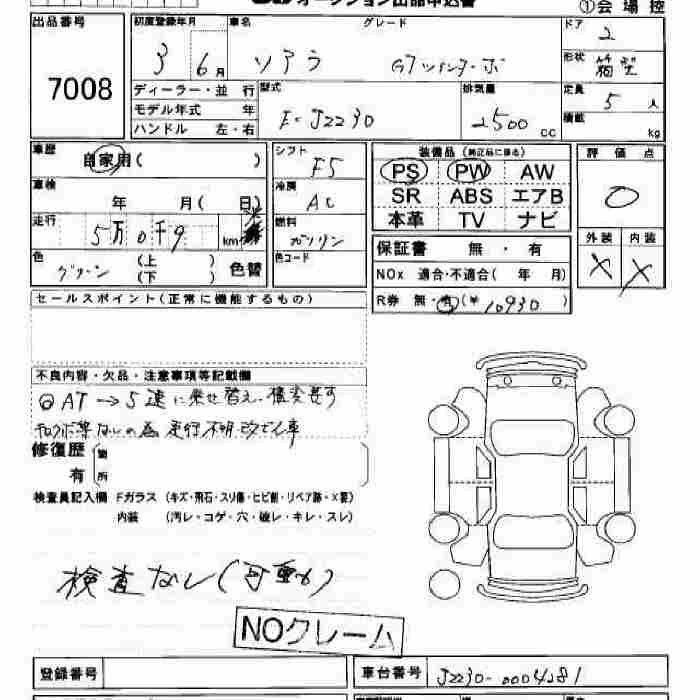 オークション出品申込書
①会場控
出品番号 初度登録年月 車名 グレード ドア
7008 3 6月 ソアラ GTツインターボ 2
形状 箱型
ディーラー・並行 型式 排気量 定員 5人
モデル年式 年 E-JZZ30 2500cc 積載 kg
ハンドル 左・右
車歴 自家用( ) シフト F5 装備品(純正品に限る) 評価点
PS PW AW 0
車検 年 月( 日) 冷房 AC SR ABS エアB
本革 TV ナビ
走行 5万0千9 km 燃料 ガソリン 外装 内装
保証書 無・有 × ×
色 グリーン (上 ) (下 ) 色替 色コード NOx 適合・不適合( 年 月)
R券 無・有(¥ 10930 )
セールスポイント(正常に機能するもの)
不良内容・欠品・注意事項等記載欄
◎AT→5速に乗せ替え、構変要す
ないの為 走行不明 改ざん車
修復歴 箇
有 所
検査員記入欄 Fガラス (キズ・飛石・スリ傷・ヒビ割・リペア跡・X要)
内装 (汚レ・コゲ・穴・破レ・キレ・スレ)
検査なし(可動)
NOクレーム
登録番号 車台番号 JZZ30-0004281